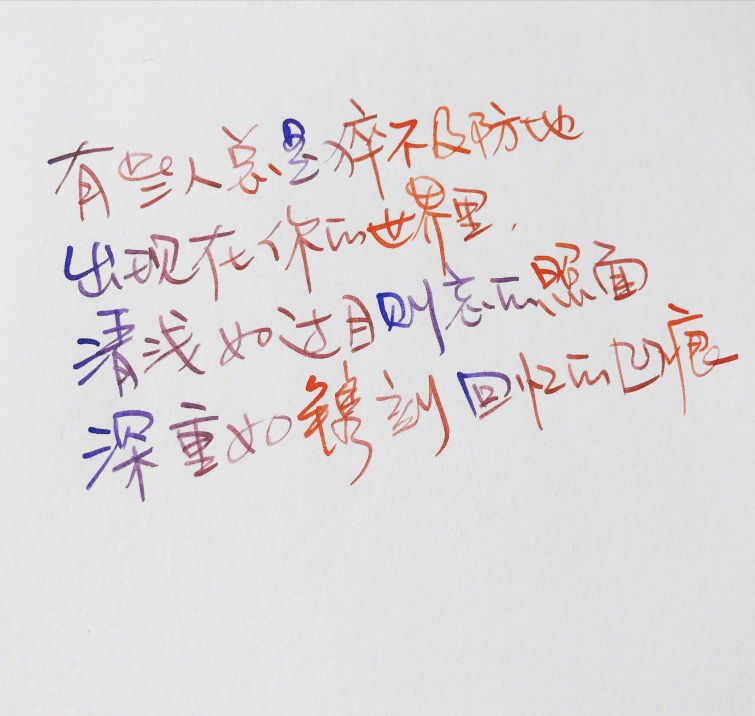 有些人总是猝不及防地
出现在你的世界里，
清浅如过目则忘的照面
深重如镌刻回忆的凹痕